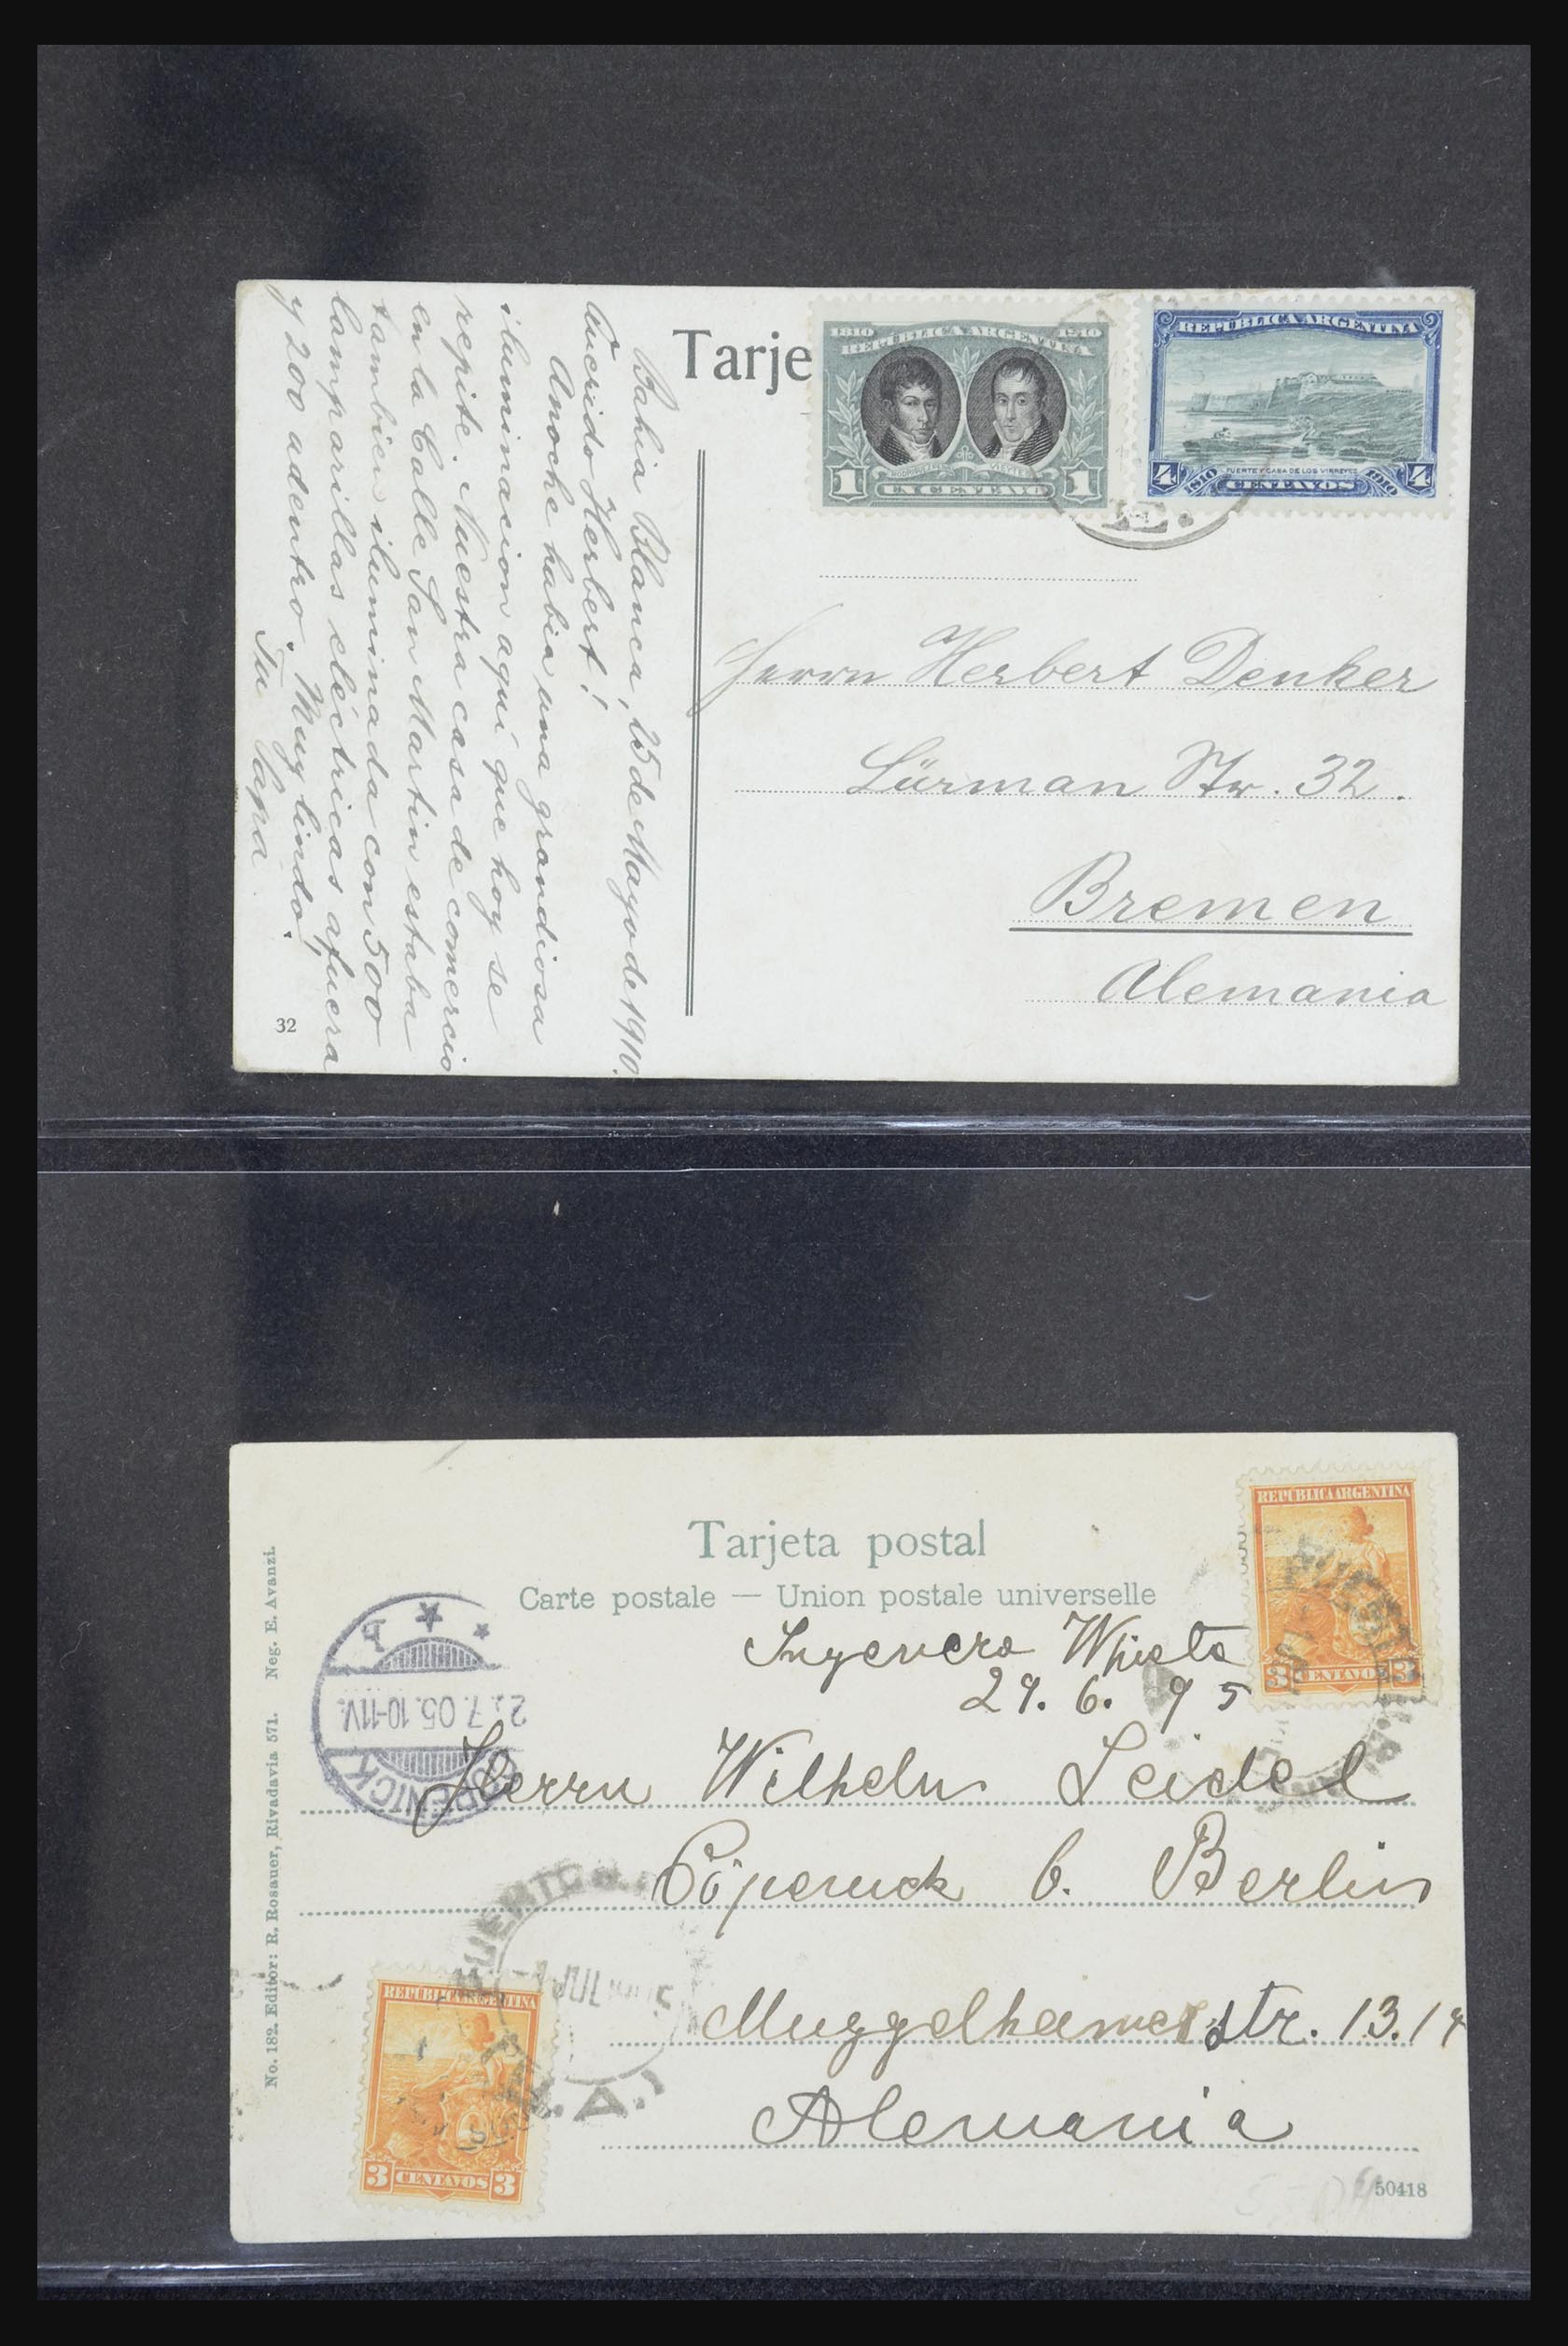 Tarje
1810 REPÚBLICA ARGENTINA 1910
1 UN CENTAVO 1
REPÚBLICA ARGENTINA
FUERTE Y CASA DE LOS VIRREYES
4 1810 CENTAVOS 1910 4
Bahia Blanca, 25 de Mayo de 1910.
Querido Herbert!
Anoche habia una grandiosa
iluminacion aquí que hoy se
repite. Nuestra casa de comercio
en la Calle San Martin estaba
tambien iluminada con 500
lamparillas eléctricas afuera
y 200 adentro. Muy lindo.
Tu Papa
32
Herrn Herbert Denker
Lürman Str. 32.
Bremen
Alemania
Tarjeta postal
Carte postale — Union postale universelle
REPUBLICA ARGENTINA
3 CENTAVOS 3
Ingeniero
29. 6. 95
Herrn Wilhelm Seidel
Cöpenick b. Berlin
Muggelheimerstr. 13.14
Alemania
7.05.10-11V.
No. 182. Editor: R. Rosauer, Rivadavia 571. Neg. E. Avanzi.
REPUBLICA ARGENTINA
3 CENTAVOS 3
50418